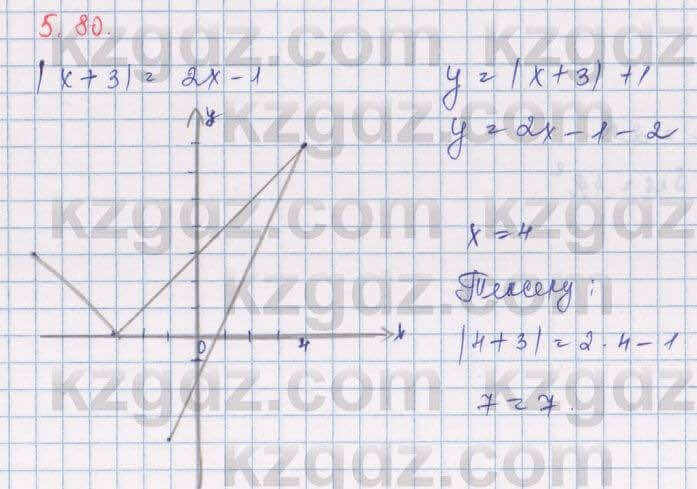 5.80.
|x+3| = 2x-1
y = |x+3| +1
y = 2x-1-2
y
x = 4
Тексеру:
0 4 x
|4+3| = 2·4-1
7 = 7.
kzgdz.com
kzgdz.com
kzgdz.com
kzgdz.com
kzgdz.com
kzgdz.com
kzgdz.com
kzgdz.com